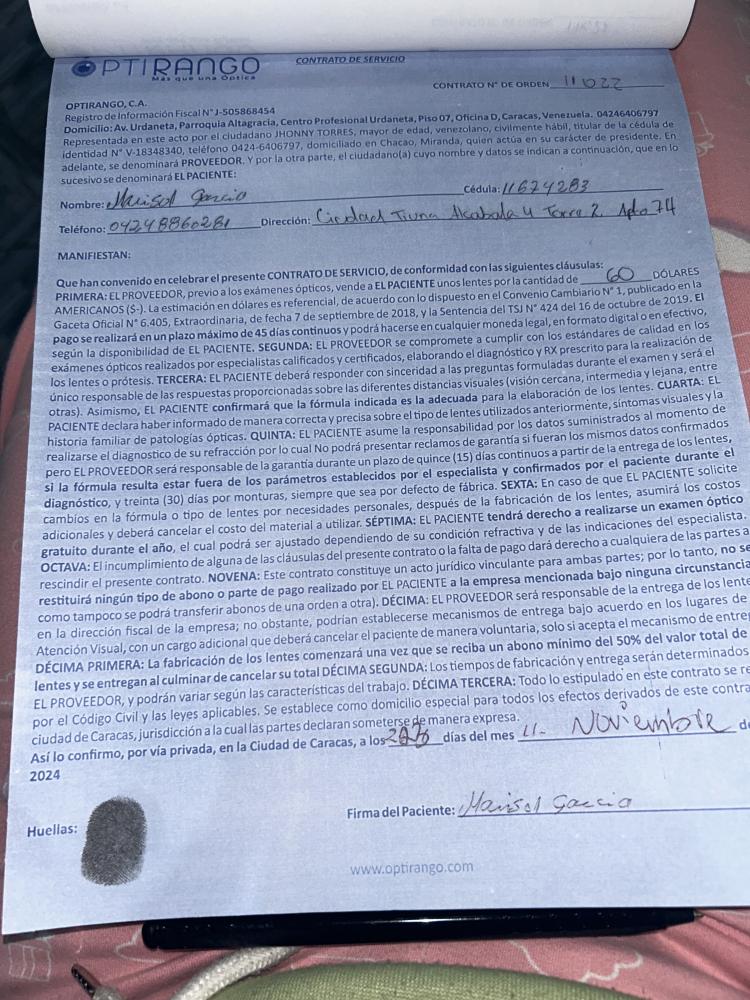 OPTIRANGO
Más que una Óptica
CONTRATO DE SERVICIO
CONTRATO N° DE ORDEN 11022
OPTIRANGO, C.A.
Registro de Información Fiscal N° J-505868454
Domicilio: Av. Urdaneta, Parroquia Altagracia, Centro Profesional Urdaneta, Piso 07, Oficina D, Caracas, Venezuela. 04246406797
Representada en este acto por el ciudadano JHONNY TORRES, mayor de edad, venezolano, civilmente hábil, titular de la cédula de
identidad N° V-18348340, teléfono 0424-6406797, domiciliado en Chacao, Miranda, quien actúa en su carácter de presidente. En
adelante, se denominará PROVEEDOR. Y por la otra parte, el ciudadano(a) cuyo nombre y datos se indican a continuación, que en lo
sucesivo se denominará EL PACIENTE:
Nombre: Marisol Garcia Cédula: 11674283
Teléfono: 04248860281 Dirección: Ciudad Tiuna Alcabala 4 Torre 2. Apto 74
MANIFIESTAN:
Que han convenido en celebrar el presente CONTRATO DE SERVICIO, de conformidad con las siguientes cláusulas:
PRIMERA: EL PROVEEDOR, previo a los exámenes ópticos, vende a EL PACIENTE unos lentes por la cantidad de 60 DÓLARES
AMERICANOS ($-). La estimación en dólares es referencial, de acuerdo con lo dispuesto en el Convenio Cambiario N° 1, publicado en la
Gaceta Oficial N° 6.405, Extraordinaria, de fecha 7 de septiembre de 2018, y la Sentencia del TSJ N° 424 del 16 de octubre de 2019. El
pago se realizará en un plazo máximo de 45 días continuos y podrá hacerse en cualquier moneda legal, en formato digital o en efectivo,
según la disponibilidad de EL PACIENTE. SEGUNDA: EL PROVEEDOR se compromete a cumplir con los estándares de calidad en los
exámenes ópticos realizados por especialistas calificados y certificados, elaborando el diagnóstico y RX prescrito para la realización de
los lentes o prótesis. TERCERA: EL PACIENTE deberá responder con sinceridad a las preguntas formuladas durante el examen y será el
único responsable de las respuestas proporcionadas sobre las diferentes distancias visuales (visión cercana, intermedia y lejana, entre
otras). Asimismo, EL PACIENTE confirmará que la fórmula indicada es la adecuada para la elaboración de los lentes. CUARTA: EL
PACIENTE declara haber informado de manera correcta y precisa sobre el tipo de lentes utilizados anteriormente, síntomas visuales y la
historia familiar de patologías ópticas. QUINTA: EL PACIENTE asume la responsabilidad por los datos suministrados al momento de
realizarse el diagnostico de su refracción por lo cual No podrá presentar reclamos de garantía si fueran los mismos datos confirmados
pero EL PROVEEDOR será responsable de la garantía durante un plazo de quince (15) días continuos a partir de la entrega de los lentes,
si la fórmula resulta estar fuera de los parámetros establecidos por el especialista y confirmados por el paciente durante el
diagnóstico, y treinta (30) días por monturas, siempre que sea por defecto de fábrica. SEXTA: En caso de que EL PACIENTE solicite
cambios en la fórmula o tipo de lentes por necesidades personales, después de la fabricación de los lentes, asumirá los costos
adicionales y deberá cancelar el costo del material a utilizar. SÉPTIMA: EL PACIENTE tendrá derecho a realizarse un examen óptico
gratuito durante el año, el cual podrá ser ajustado dependiendo de su condición refractiva y de las indicaciones del especialista.
OCTAVA: El incumplimiento de alguna de las cláusulas del presente contrato o la falta de pago dará derecho a cualquiera de las partes a
rescindir el presente contrato. NOVENA: Este contrato constituye un acto jurídico vinculante para ambas partes; por lo tanto, no se
restituirá ningún tipo de abono o parte de pago realizado por EL PACIENTE a la empresa mencionada bajo ninguna circunstancia
como tampoco se podrá transferir abonos de una orden a otra). DÉCIMA: EL PROVEEDOR será responsable de la entrega de los lente
en la dirección fiscal de la empresa; no obstante, podrían establecerse mecanismos de entrega bajo acuerdo en los lugares de
Atención Visual, con un cargo adicional que deberá cancelar el paciente de manera voluntaria, solo si acepta el mecanismo de entre
DÉCIMA PRIMERA: La fabricación de los lentes comenzará una vez que se reciba un abono mínimo del 50% del valor total de
lentes y se entregan al culminar de cancelar su total DÉCIMA SEGUNDA: Los tiempos de fabricación y entrega serán determinados
EL PROVEEDOR, y podrán variar según las características del trabajo. DÉCIMA TERCERA: Todo lo estipulado en este contrato se re
por el Código Civil y las leyes aplicables. Se establece como domicilio especial para todos los efectos derivados de este contra
ciudad de Caracas, jurisdicción a la cual las partes declaran someterse de manera expresa.
Así lo confirmo, por vía privada, en la Ciudad de Caracas, a los días del mes 11- Noviembre de
2024
Firma del Paciente: Marisol Garcia
Huellas:
www.optirango.com